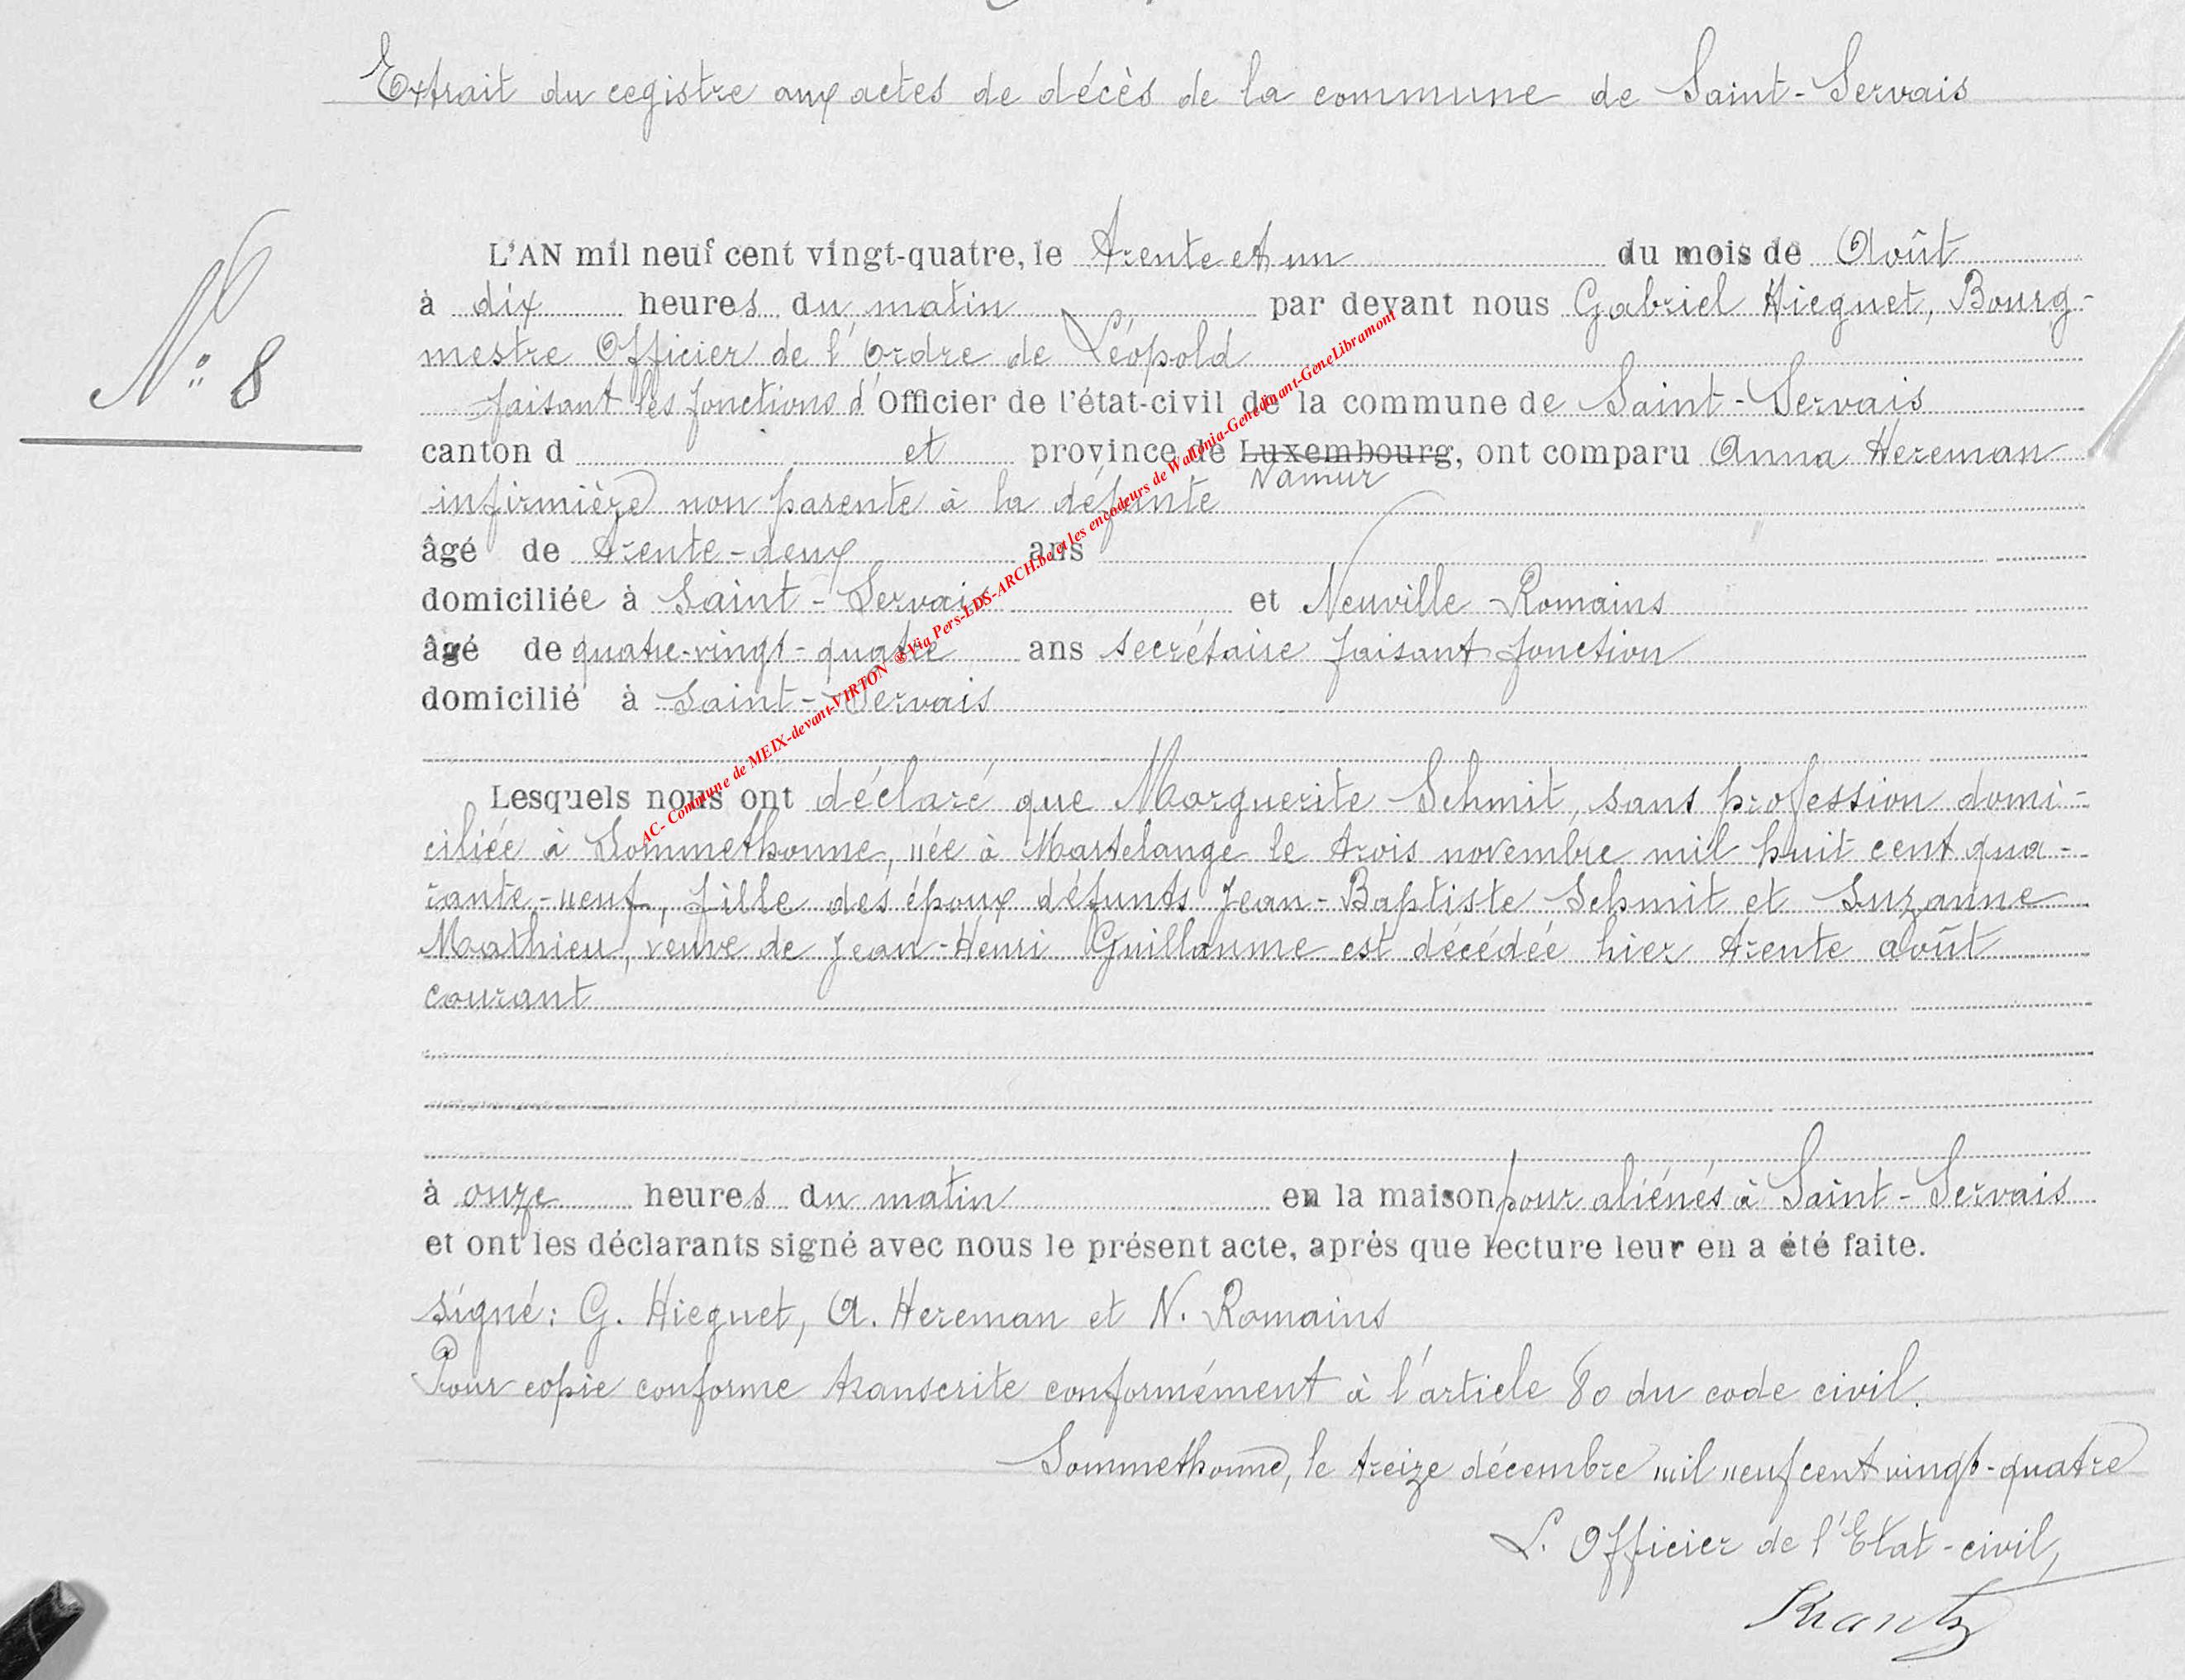 Extrait du registre aux actes de décès de la commune de Saint-Servais
N° 8
L'AN mil neuf cent vingt-quatre, le trente et un du mois de Août
à dix heures du matin par devant nous Gabriel Hieguet, Bourg-
mestre Officier de l'ordre de Léopold
faisant les fonctions d'Officier de l'état-civil de la commune de Saint-Servais
canton d et province de Luxembourg, ont comparu Anna Hereman
Namur
infirmière non parente à la défunte
âgé de trente-deux ans
domiciliée à Saint-Servais et Neuville Romains
âgé de quatre-vingt-quatre ans secrétaire faisant fonction
domicilié à Saint-Servais
Lesquels nous ont déclaré que Marguerite Schmit, sans profession domi-
ciliée à Sommethonne, née à Martelange le trois novembre mil huit cent qua-
rante-neuf, fille des époux défunts Jean-Baptiste Schmit et Suzanne
Mathieu, veuve de Jean-Henri Guillaume est décédée hier trente août
courant
à onze heures du matin en la maison pour aliénés à Saint-Servais
et ont les déclarants signé avec nous le présent acte, après que lecture leur en a été faite.
signé: G. Hieguet, A. Hereman et N. Romains
Pour copie conforme transcrite conformément à l'article 80 du code civil.
Sommethonne, le treize décembre mil neuf cent vingt-quatre
L'Officier de l'Etat-civil,
Krantz
AC- Commune de MEIX-devant-VIRTON ®Via Pers-LDS-ARCH.be et les encodeurs de Wallonia-Genedinant-GeneLibramont